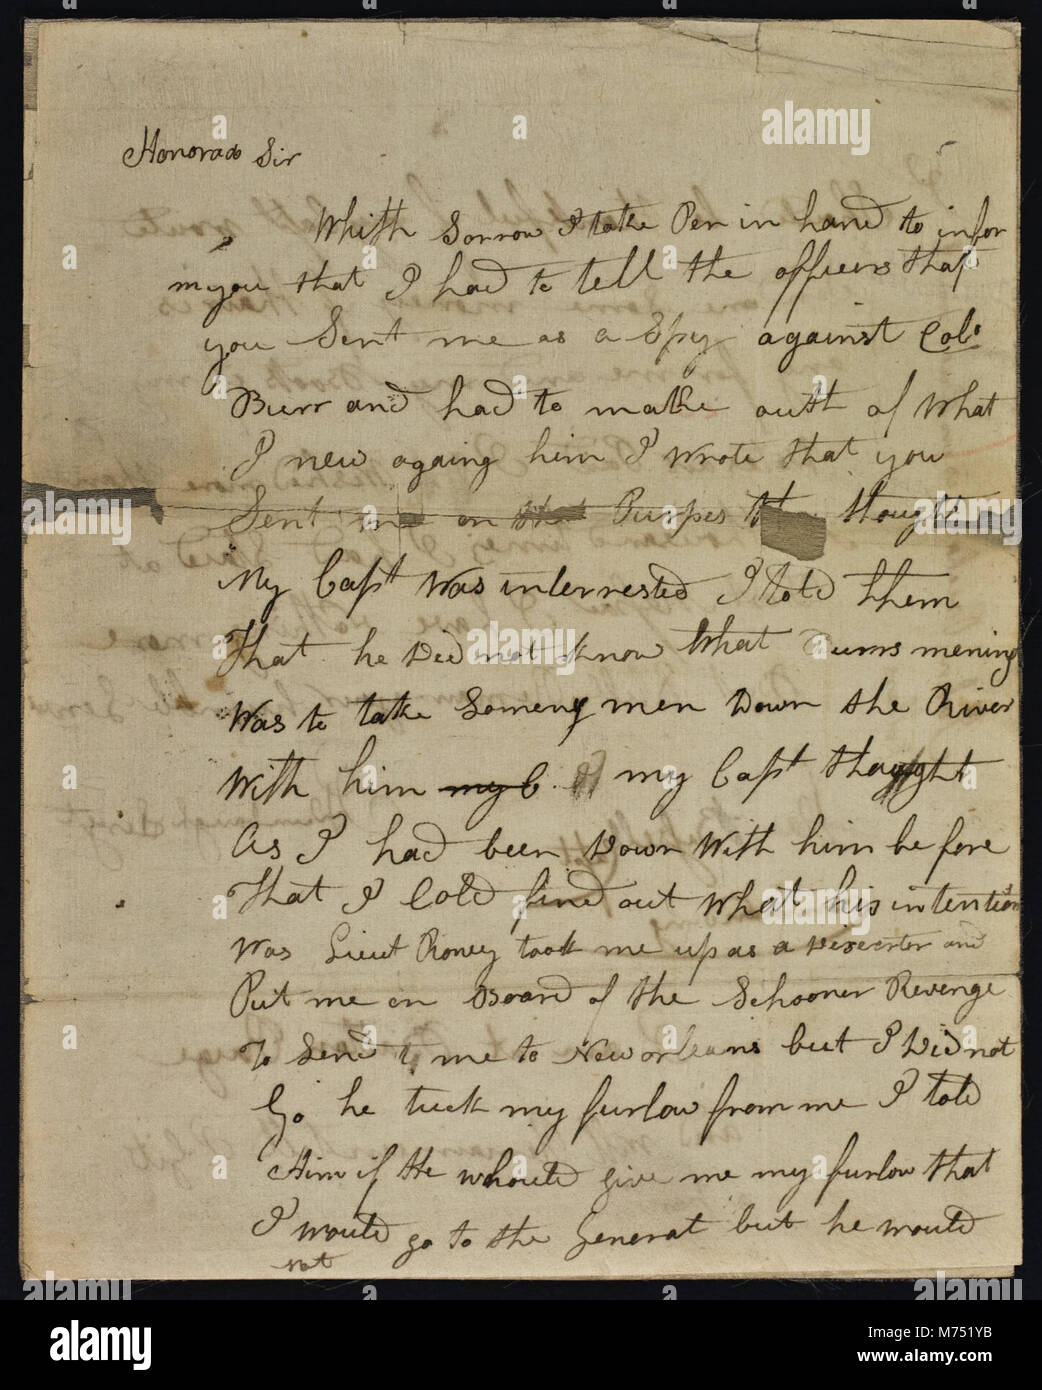 Honorad Sir
Whith Sorrow I take Pen in hand to infor
m you that I had to tell the officers that
you Sent me as a Spy against Col.
Burr and had to make outt of what
I new againg him I wrote that you
Sent me on that Purpes thought
My Capt was interrested I told them
That he Did not know what Burrs mening
was to take Someny men Down the River
With him my C my Capt thought
As I had been Down With him be fore
That I Cold find out what his intention
Was Lieut Roney took me up as a Diserter and
Put me on Board of the Schooner Revenge
To Send me to New orleans but I Did not
Go he tuck my furlow from me I told
Him if He whould give me my furlow that
I would go to the General but he would
not
alamy
M751YB
www.alamy.com